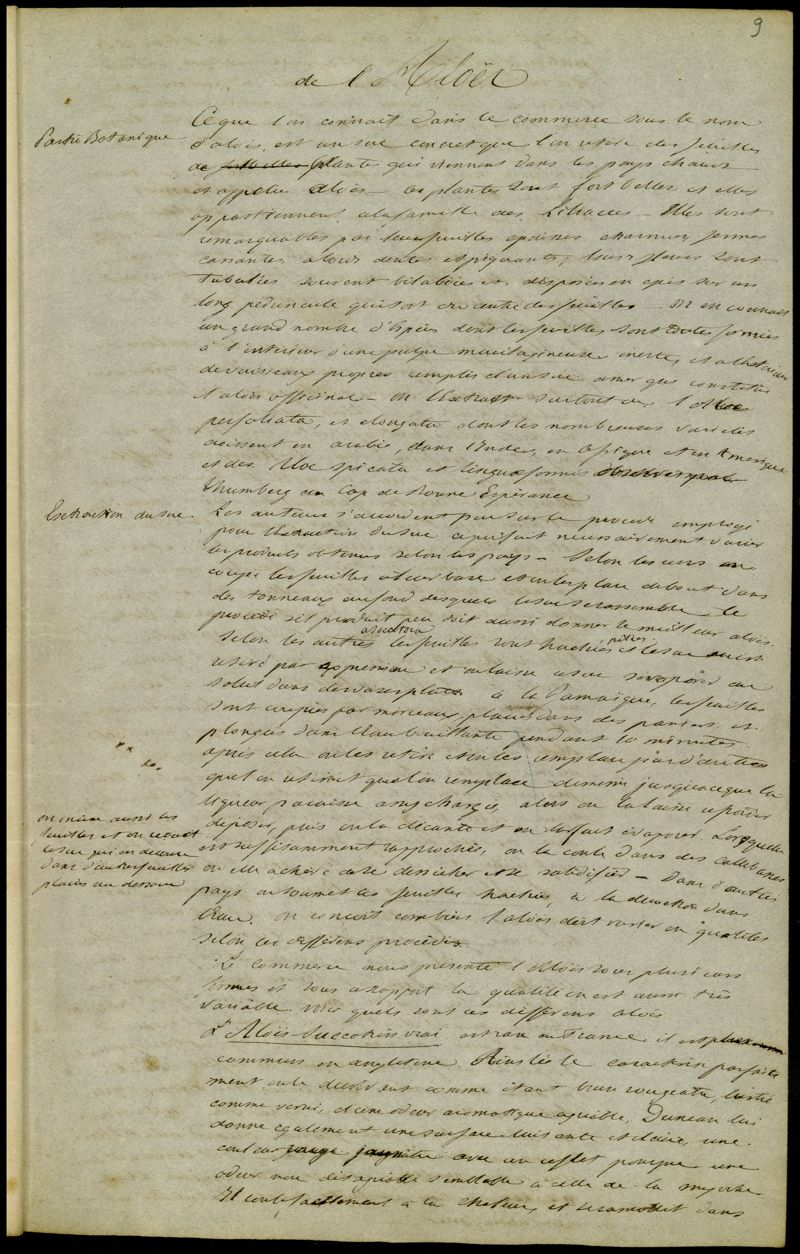 9
de l'Aloës
Partie Botanique
Ce que l'on connait dans le commerce sous le nom
d'aloës, est un suc concret que l'on retire des feuilles
de plantes qui viennent dans les pays chauds
et appelées Aloës – ces plantes sont fort belles et elles
appartiennent à la famille des Liliacées – Elles sont
remarquables par leurs feuilles epaisses charnues fermes
cassantes à bords dentés et piquants; leurs fleurs sont
tubulées souvent bilabiées et disposées en epis sur un
long pedoncule qui sort du centre des feuilles – On en connait
un grand nombre d'Espèces dont les feuilles sont toutes formées
à l'interieur d'une pulpe mucilagineuse inerte, et à l'exterieur
de vaisseaux propres remplis d'un suc amer qui constitue
l'aloës officinal – on l'Extrait surtout de l'Aloe
perfoliata, et elongata dont les nombreuses varietés
croissent en arabie, dans l'Inde, en Afrique et en Amerique
et des Aloe spicata et linguæformis
Thumberg au Cap de Bonne Espérance
Extraction du suc.
Les auteurs s'accordent peu sur le procédé employé
pour l'Extraction du suc ce qui fait necessairement varier
les produits obtenus selon les pays – Selon les uns on
coupe les feuilles à leur base et on les place debout dans
des tonneaux au fond desquels le suc se rassemble le
procédé s'il produit peu doit aussi donner le meilleur aloës.
a socotora
Selon les autres les feuilles sont hachées pilées et le suc en est
retiré par expression et on laisse ce suc s'evaporer au
soleil dans des vases plats. à la Jamaïque, les feuilles
sont coupées par morceaux, placées dans des paniers et
plongées dans l'eau bouillante pendant 10 minutes
après cela on les retire et on les remplace par d'autres
que l'on retire et que l'on remplace de même jusqu'à ce que la
liqueur paraisse assez chargée, alors on la laisse refroidir
déposer, puis on la décante et on la fait évaporer. Lorsqu'elle
est suffisamment rapprochée, on la coule dans des calebasses
où elle achève de se dessécher et se solidifier – Dans d'autres
pays on soumet les feuilles hachées, à la décoction dans
l'Eau. on conçoit combien l'aloës doit varier en qualités
selon ces differens procédés.
on incise aussi les
feuilles et on reçoit
le suc qui en découle
dans d'autres feuilles
placées au dessous
Le commerce nous présente l'Aloës sous plusieurs
formes et sous ce rapport la qualité en est aussi très
variable. voici quels sont ces differens aloës
L'Aloës Succotrin vrai est rare en France, il est plus
commun en angleterre. Ainslie le caractérise parfaite
ment en le décrivant comme étant brun rougeatre, lustré
comme verni, d'une odeur aromatique agréable, Duncan lui
donne egalement une surface luisante et claire, une
couleur jaunatre avec un reflet pourpre une
odeur non désagréable semblable à celle de la myrrhe
Il coule facilement à la chaleur, et se ramollit dans